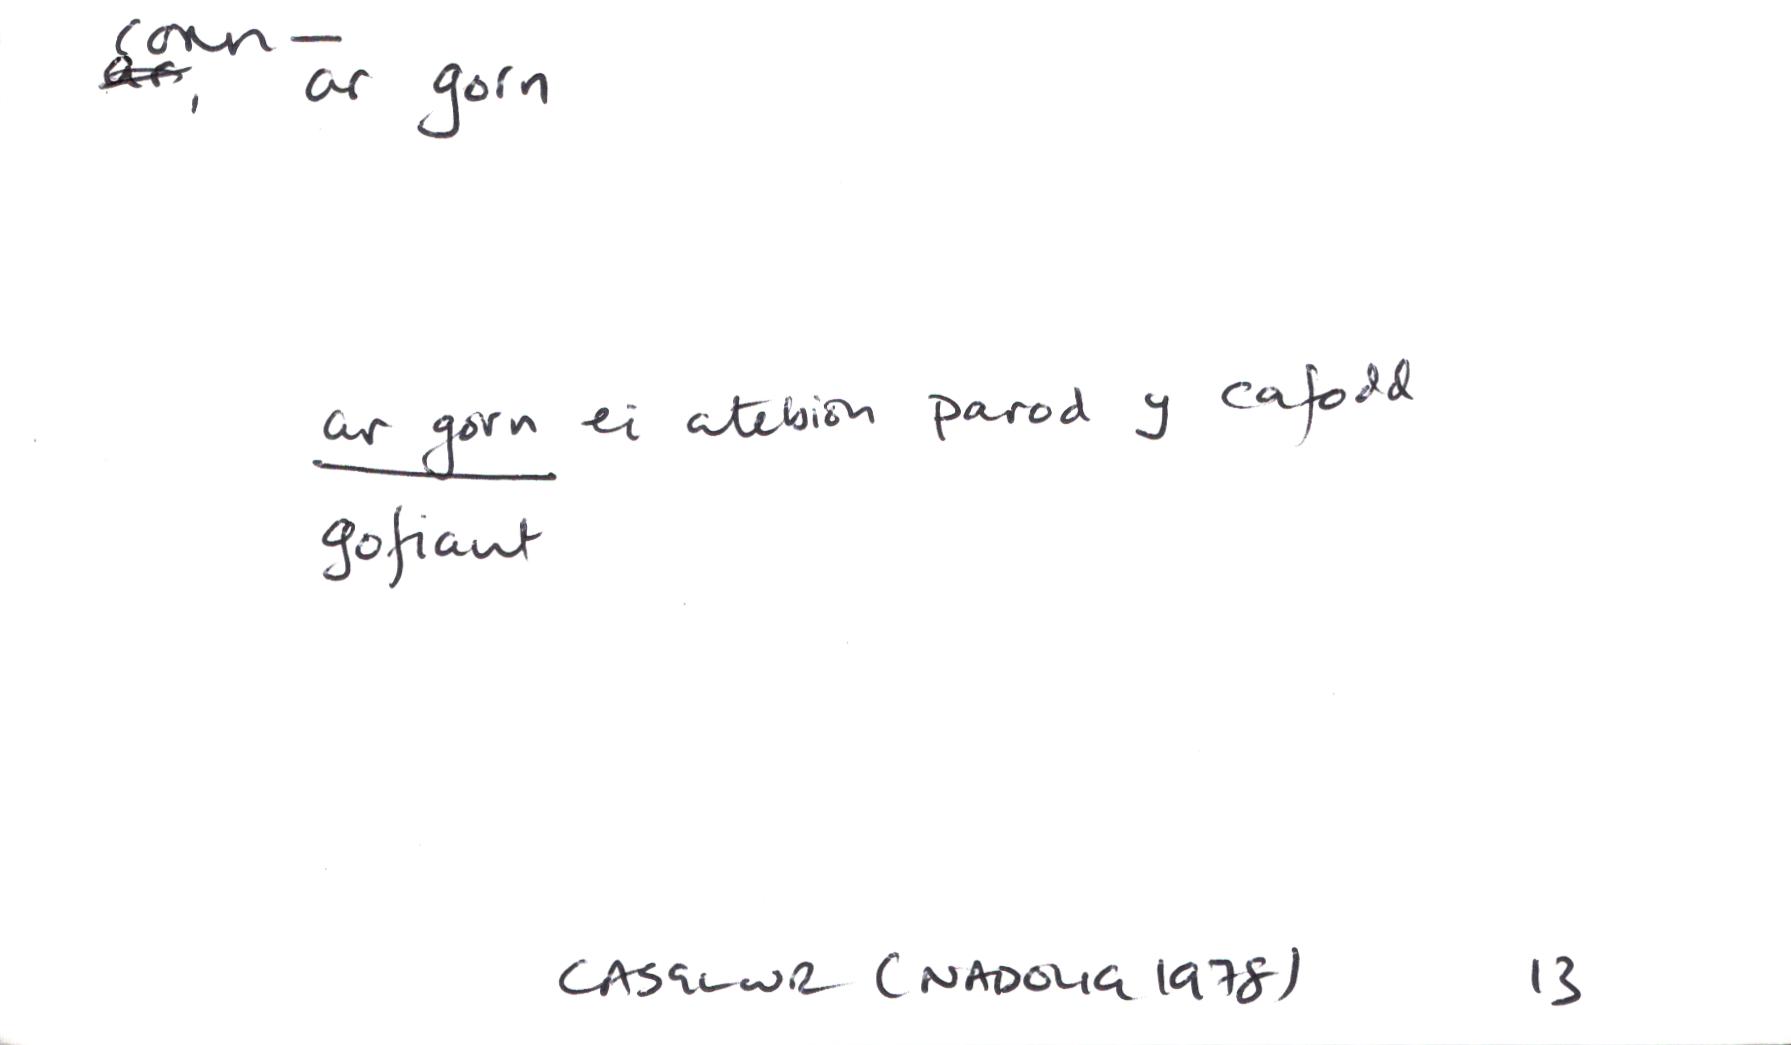 corn –
ar gorn
ar gorn ei atebion parod y cafodd
gofiant
CASGLWR (NADOLIG 1978) 13